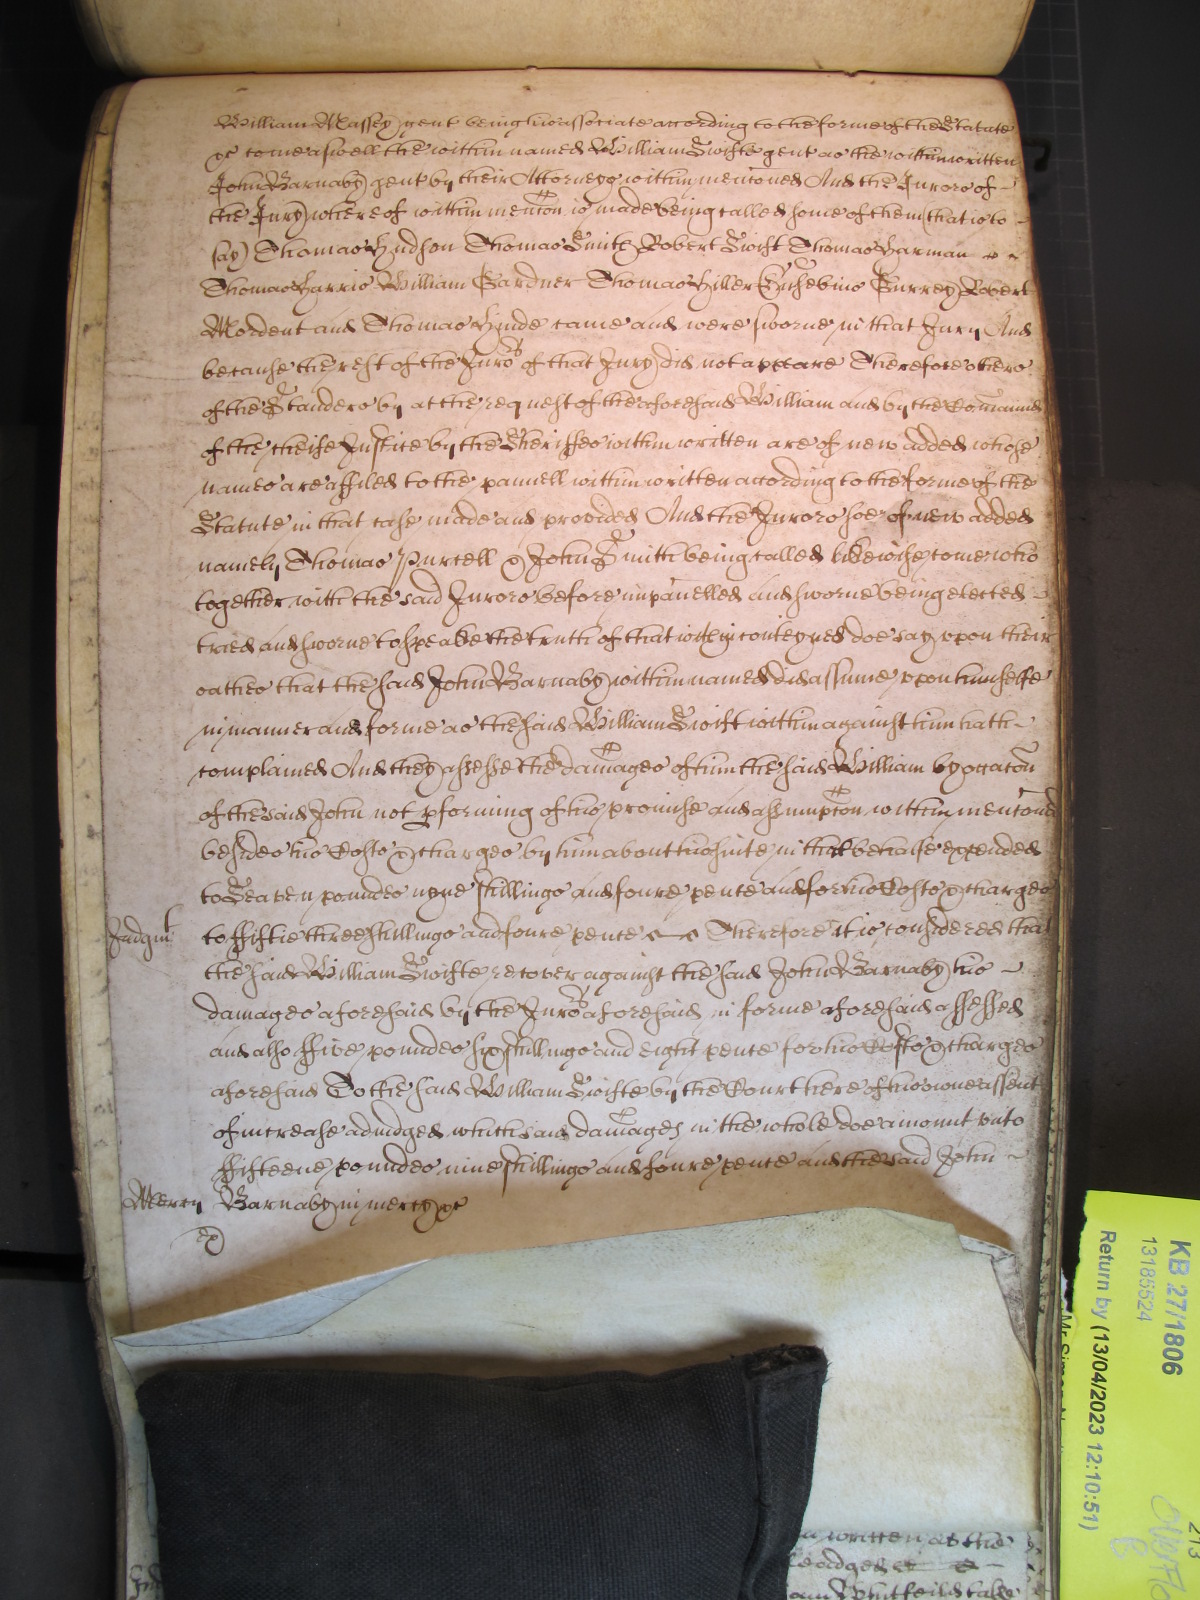 William Massey gent being his associate according to the forme of the Statute
&c come aswell the within named William Swifte gent as the within written
John Barnaby gent by their Attorneys within menconed And the Jurors of
the Jury whereof within mencon is made being called some of them (that is to
say) Thomas Hudson Thomas Smith Robert Swift Thomas Harman
Thomas Harris William Gardner Thomas Hiller Eusebius Gurrey Robert
Mordent and Thomas Hynde came and were sworne in that Jury And
because the rest of the Jurors of that Jury did not appeare Therefore others
of the Standers by at the request of the aforesaid William and by the Comaund
of the cheife Justice by the Sheriffes within written are of new added whose
names are affiled to the pannell within written acording to the forme of the
Statute in that case made and provided And the Jurors soe of new added
namely Thomas Purcell & John Smith being called likewise come who
together with the said Jurors before impanelled and sworne being elected
tried and sworne to speake the truth of that within conteyned doe say upon their
oathes that the said John Barnaby within named did assume upon himselfe
in manner and forme as the said William Swift within against him hath
complained And they assesse the damages of him the said William by occacon
of the said John not pforming of his promise and assumpcon within menconed
besides his Costs & charges by him about his suite in that behalfe expended
to Seaven poundes nyne shillings and foure pence and for his Costs & charges
Judgmt
to ffiftie three shillings and foure pence Therefore it is considered that
the said William Swifte recover against the said John Barnaby his
damages aforesaid by the Jurors aforesaid in forme aforesaid assessed
and also ffive poundes six shillings and eight pence for his Costs & charges
aforesaid To the said William Swifte by the Court here of his owne assent
of increase adiudged which said damages in the whole doe amount unto
ffifteene poundes nine shillings and foure pence and the said John
Mercy
Barnaby in mercy &c
written as the
KB 27/1806
13185524
Return by (13/04/2023 12:10:51)